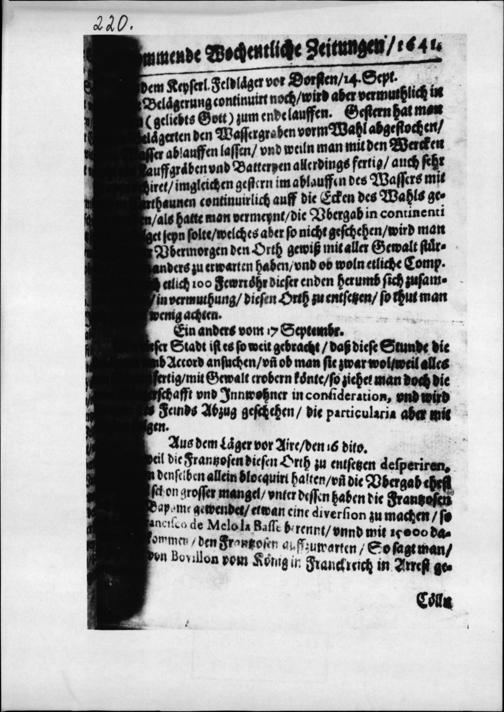 220.
ommende Wochentliche Zeitungen/1641.
dem Keyserl. Feldläger vor Dorsten/14. Sept.
Belägerung continuirt noch/wird aber vermuthlich in
(geliebts Gott) zum ende lauffen. Gestern hat man
elägerten den Wassergraben vorm Wahl abgestochen/
asser ablauffen lassen/ vnd weiln man mit den Wercken
auffgräben vnd Batteryen allerdings fertig/ auch sehr
chiret/ imgleichen gestern im ablauffen des Wassers mit
arthaunen continuirlich auff die Ecken des Wahls ge-
en/als hatte man vermeynt/die Vbergab in continenti
lget seyn solte/welches aber so nicht geschehen/wird man
r Vbermorgen den Orth gewiß mit aller Gewalt stür-
anders zu erwarten haben/vnd ob woln etliche Comp.
h etlich 100 Fewrröhr dieser enden herumb sich zusam-
/in vermuthung/ diesen Orth zu entsetzen/ so thut man
wenig achten.
Ein anders vom 17 Septembr.
eser Stadt ist es so weit gebracht/ daß diese Stunde die
mb Accord ansuchen/vñ ob man sie zwar wol/weil alles
fertig/mit Gewalt erobern könte/so ziehet man doch die
erschafft vnd Innwohner in consideration, vnd wird
s Feinds Abzug geschehen/ die particularia aber mit
lgen.
Aus dem Läger vor Aire/den 16 dito.
weil die Frantzosen diesen Orth zu entsetzen desperiren,
n denselben allein blocquirt halten/vñ die Vbergab ehest
schon grosser mangel/ vnter dessen haben die Frantzosen
Bapome gewendet/etwan eine diversion zu machen/ so
ancisco de Melo la Basse berennt/ vnnd mit 15000 da-
kommen/ den Frantzosen auffzuwarten/ So sagt man/
von Bovillon vom König in Franckreich in Arrest ge-
Cölln